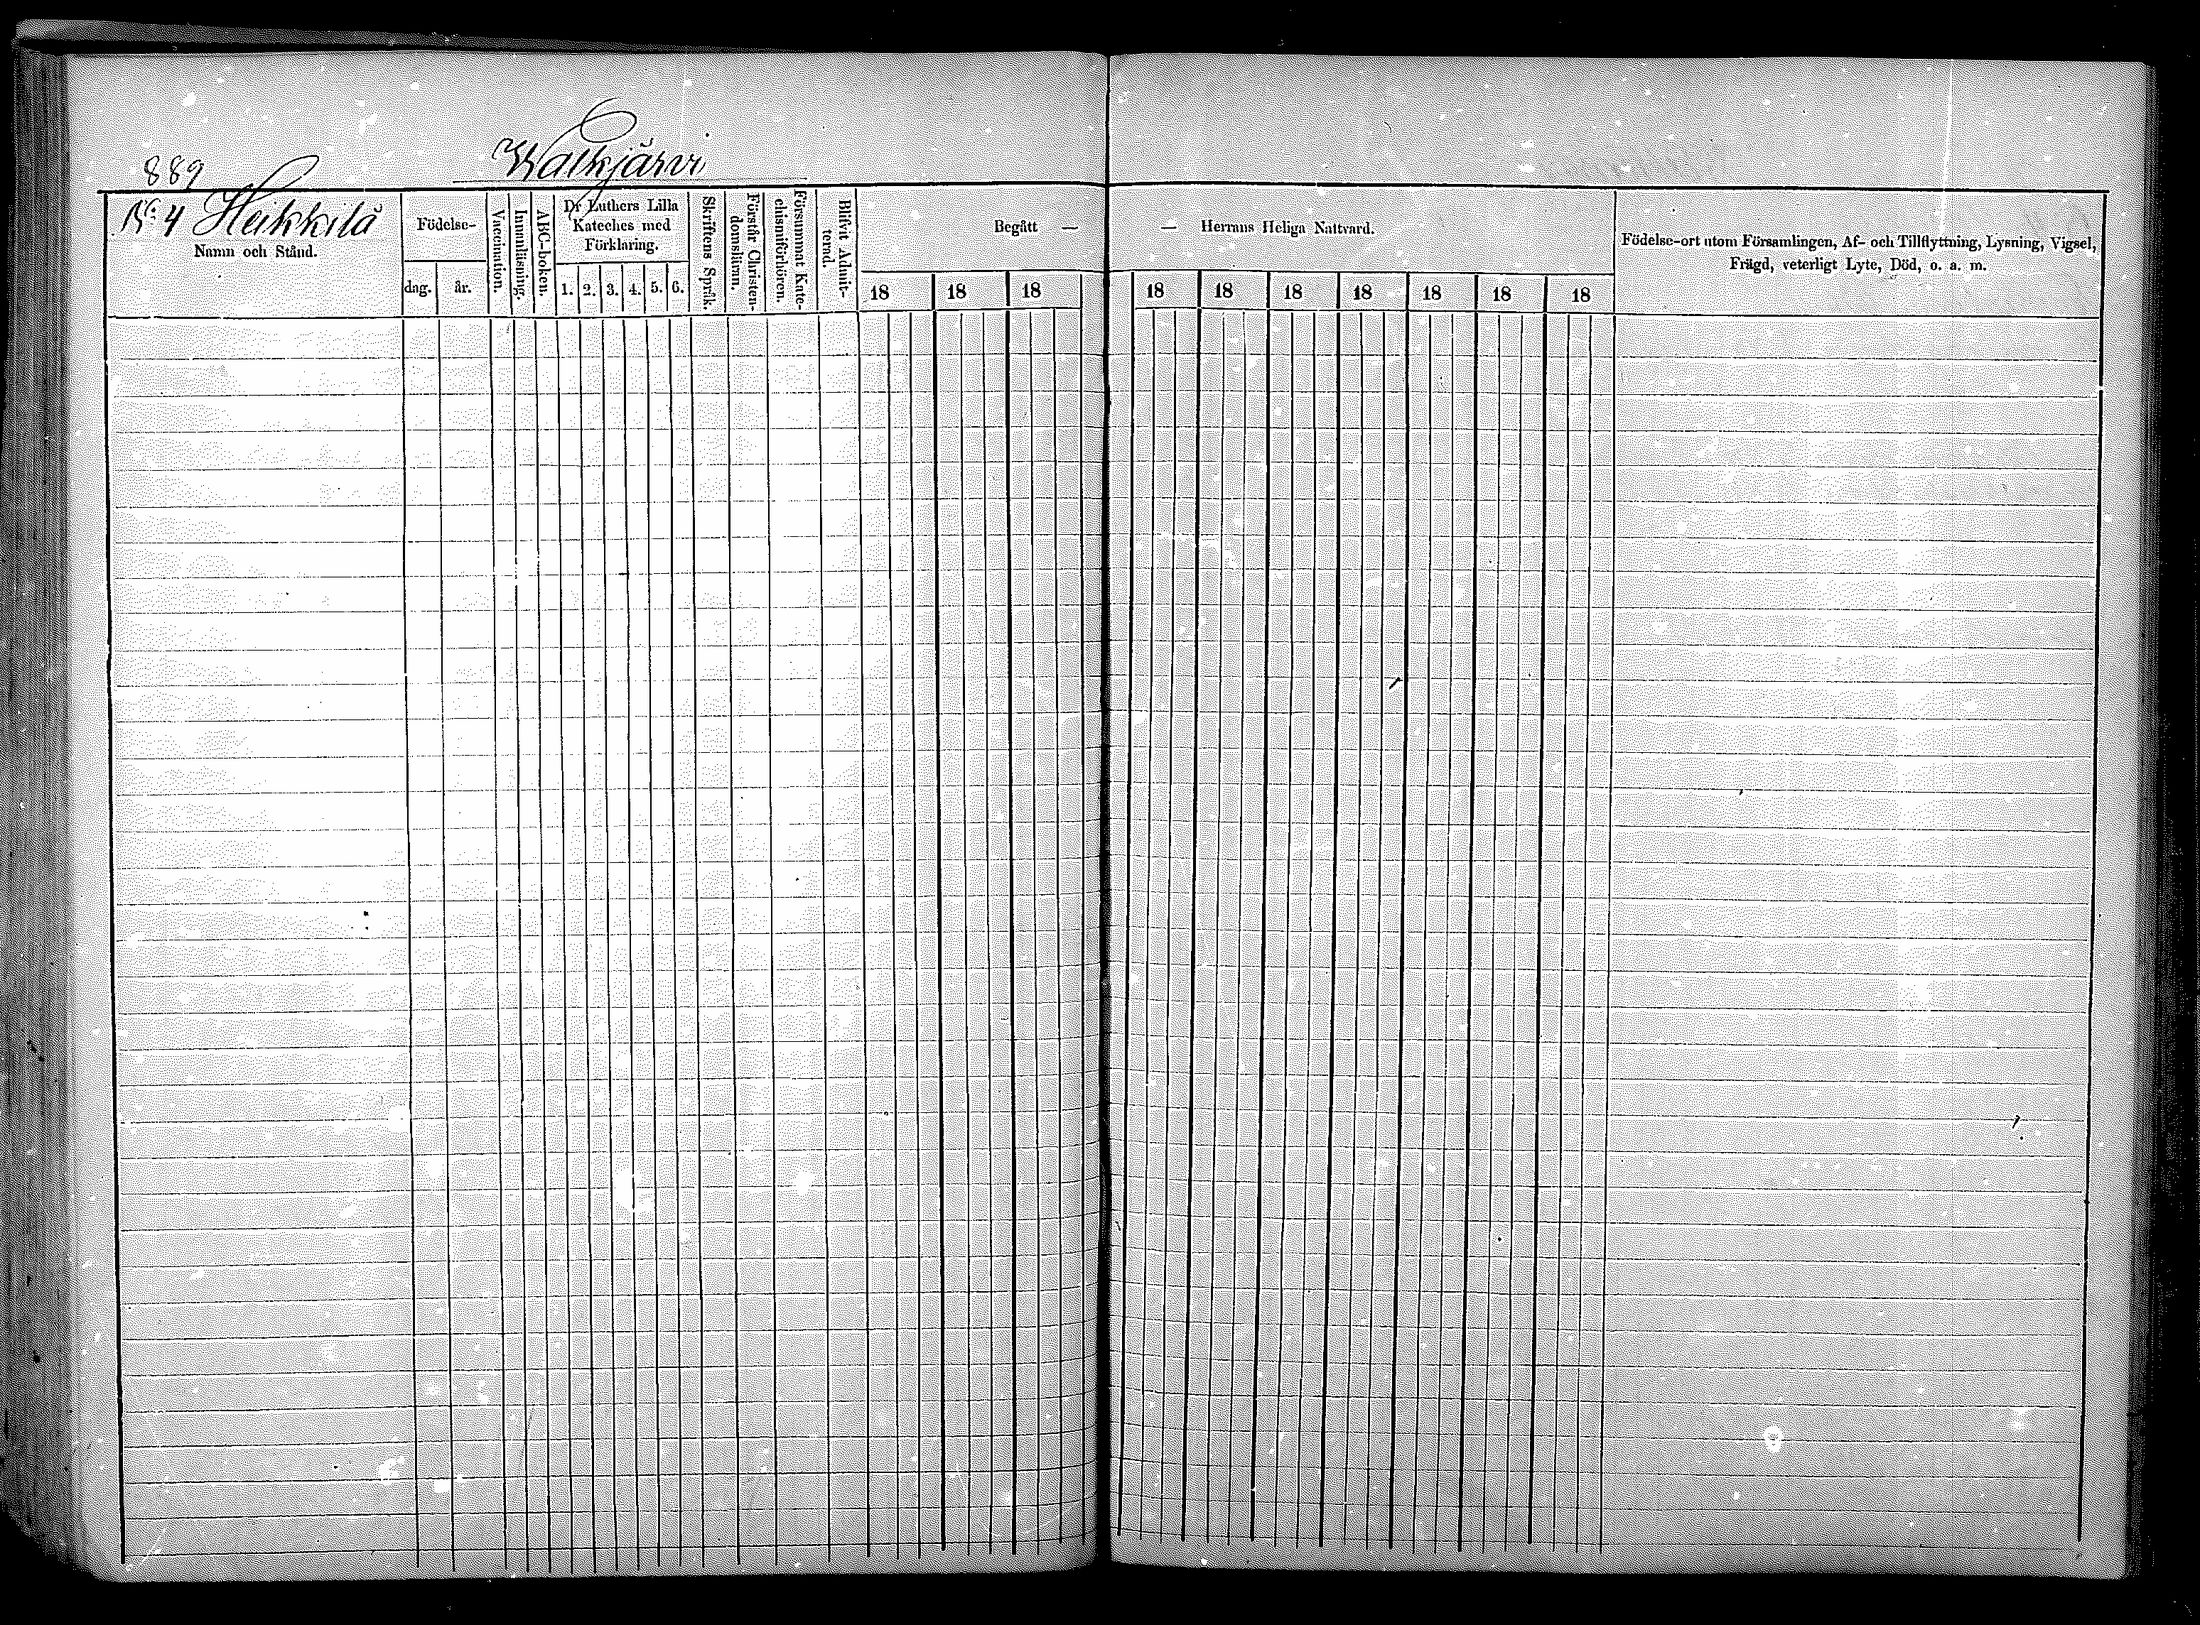 889
Walkjärvi
No. 4 Heikkilä
Namn och Stånd.
Födelse-
dag.
år.
Vaccination.
Innanläsning.
ABC-boken.
Dr Luthers Lilla
Kateches med
Förklaring.
1. 2. 3. 4. 5. 6.
Skriftens Språk.
Förstår Christen-
domsläran.
Försummat Kate-
chismiförhören.
Blifvit Admit-
terad.
Begått —
18 18 18
— Herrans Heliga Nattvard.
18 18 18 18 18 18 18
Födelse-ort utom Församlingen, Af- och Tillflyttning, Lysning, Vigsel,
Frägd, veterligt Lyte, Död, o. a. m.